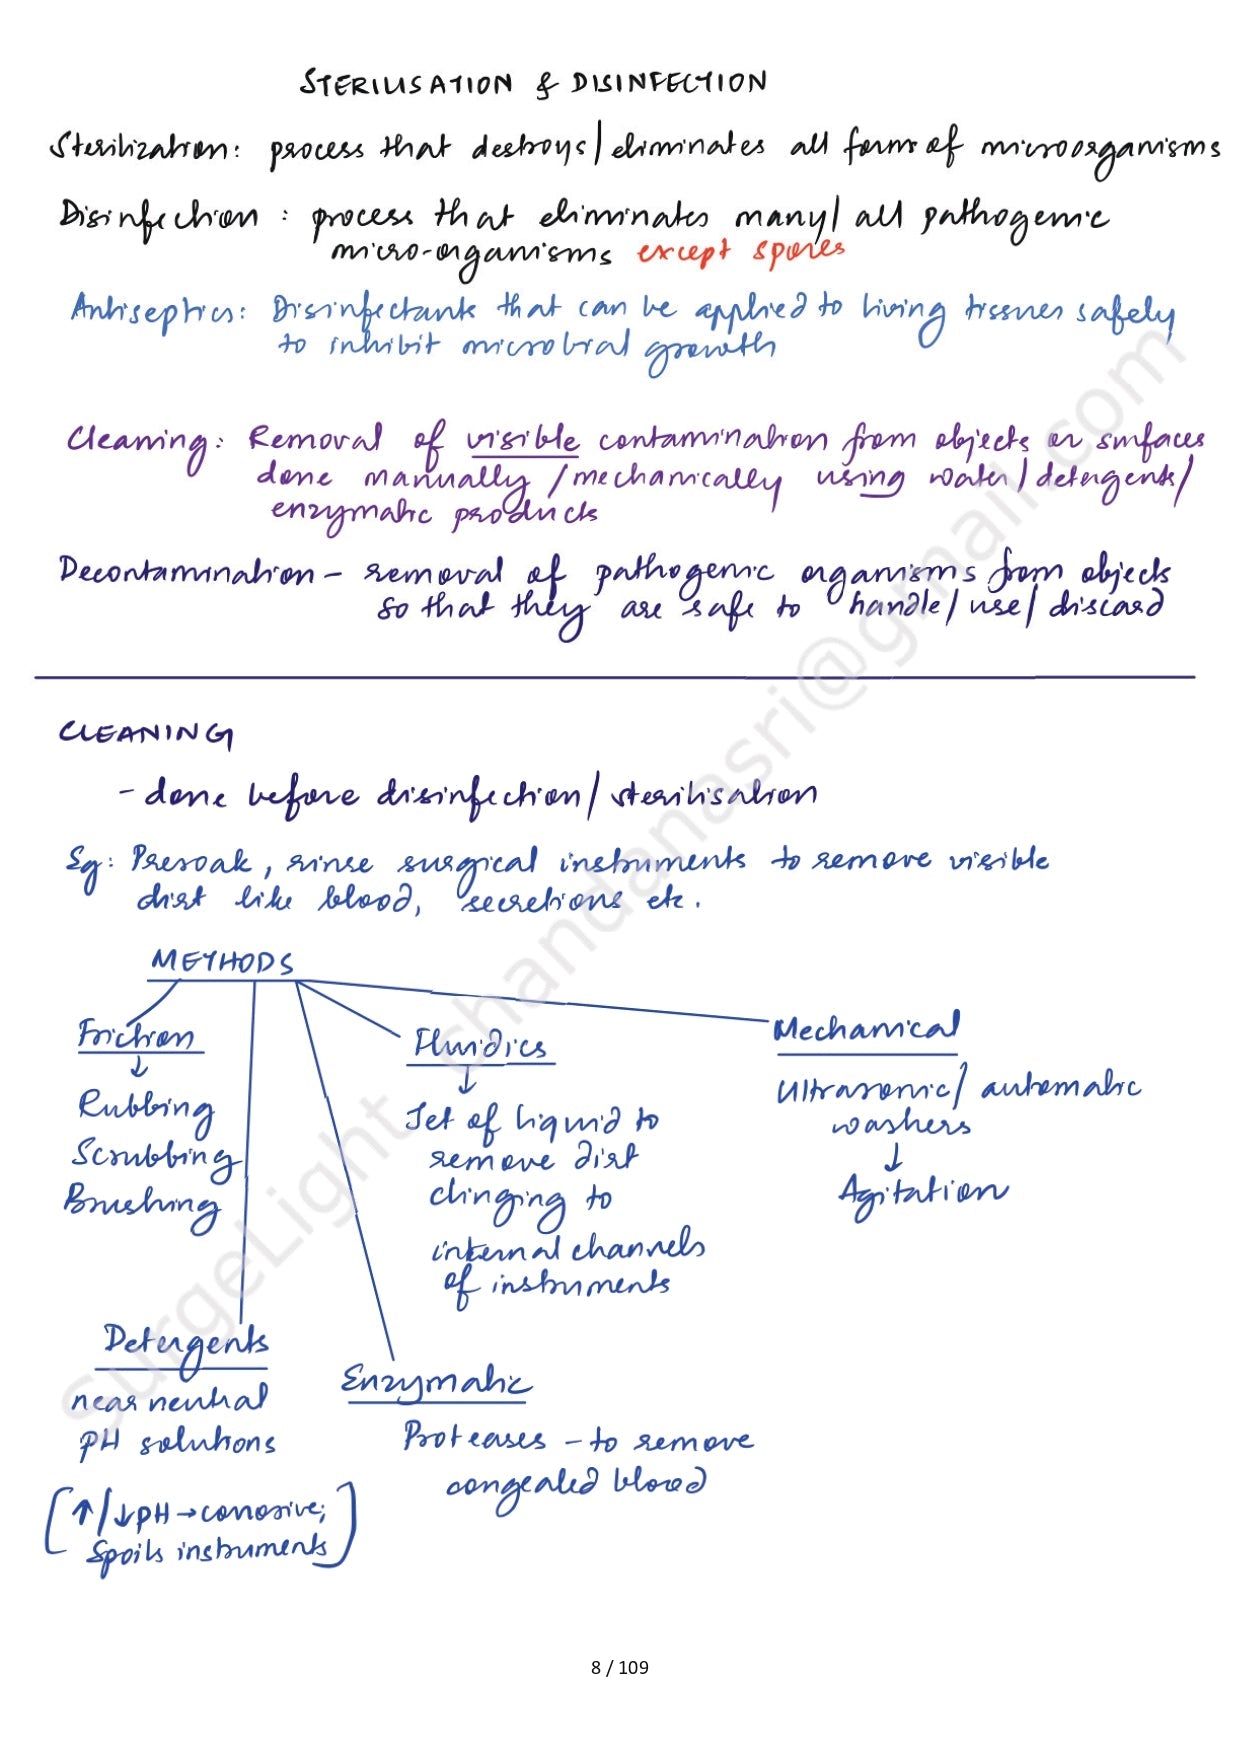 STERILISATION & DISINFECTION
Sterilization: process that destroys/eliminates all form of microorganisms
Disinfection : process that eliminates many/ all pathogenic
micro-organisms except spores
Antiseptics: Disinfectants that can be applied to living tissues safely
to inhibit microbial growth
Cleaning: Removal of visible contamination from objects or surfaces
done manually /mechanically using water/detergents/
enzymatic products
Decontamination - removal of pathogenic organisms from objects
so that they are safe to handle/use/discard
CLEANING
- done before disinfection/sterilisation
Eg: Presoak, rinse surgical instruments to remove visible
dirt like blood, secretions etc.
METHODS
Friction
↓
Rubbing
Scrubbing
Brushing
Fluidics
↓
Jet of liquid to
remove dirt
clinging to
internal channels
of instruments
Mechanical
Ultrasonic/ automatic
washers
↓
Agitation
Detergents
near neutral
pH solutions
[↑/↓pH → corrosive;
spoils instruments]
Enzymatic
Proteases - to remove
congealed blood
SurgeLight chandanasri@gmail.com
8 / 109